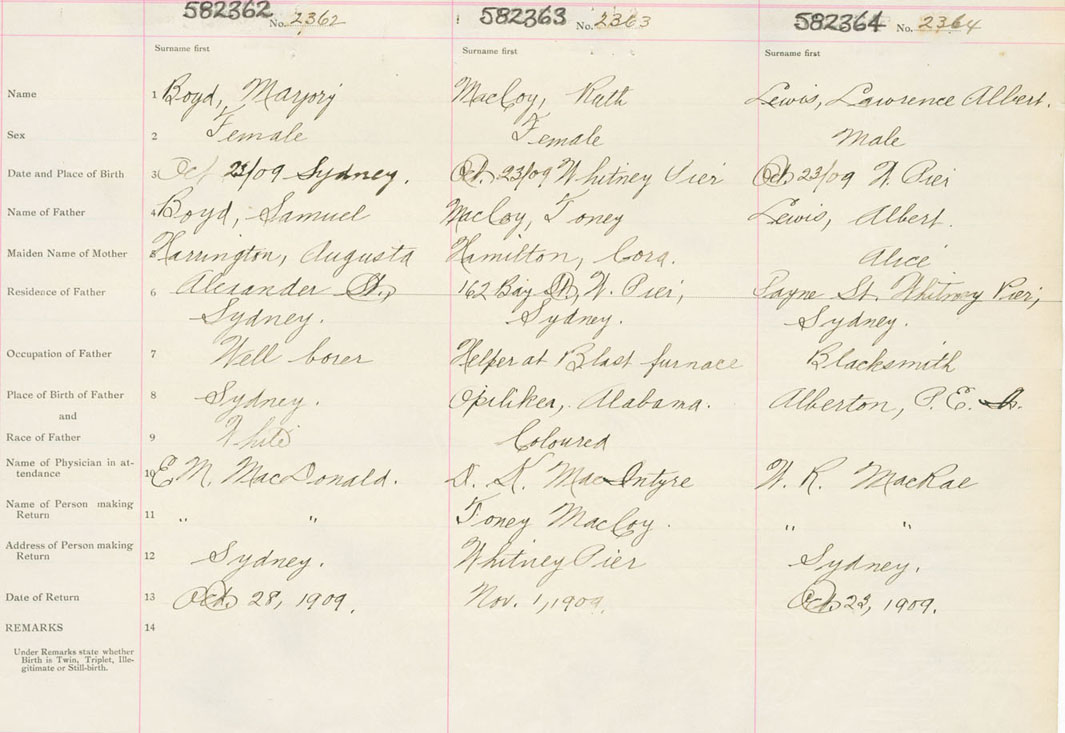 582362 No. 2362 582363 No. 2363 582364 No. 2364
Surname first Surname first Surname first
Name 1 Boyd, Marjorj MacCoy, Ruth Lewis, Lawrence Albert.
Sex 2 Female Female Male
Date and Place of Birth 3 Oct 23/09 Sydney. Oct. 23/09 Whitney Pier Oct. 23/09 W. Pier
Name of Father 4 Boyd, Samuel MacCoy, Toney Lewis, Albert.
Maiden Name of Mother 5 Harrington, Augusta Hamilton, Cora. Alice
Residence of Father 6 Alexander St., 162 Bay St., W. Pier, Payne St. Whitney Pier,
Sydney. Sydney. Sydney.
Occupation of Father 7 Well borer Helper at Blast furnace Blacksmith
Place of Birth of Father 8 Sydney. Opiliker, Alabama. Alberton, P. E. Is.
and
Race of Father 9 White Coloured
Name of Physician in at-
tendance 10 E. M. MacDonald. D. K. MacIntyre W. R. MacRae
Name of Person making
Return 11 " " Toney MacCoy. " "
Address of Person making
Return 12 Sydney. Whitney Pier Sydney.
Date of Return 13 Oct. 28, 1909. Nov. 1, 1909. Oct. 23, 1909.
REMARKS 14
Under Remarks state whether
Birth is Twin, Triplet, Ille-
gitimate or Still-birth.